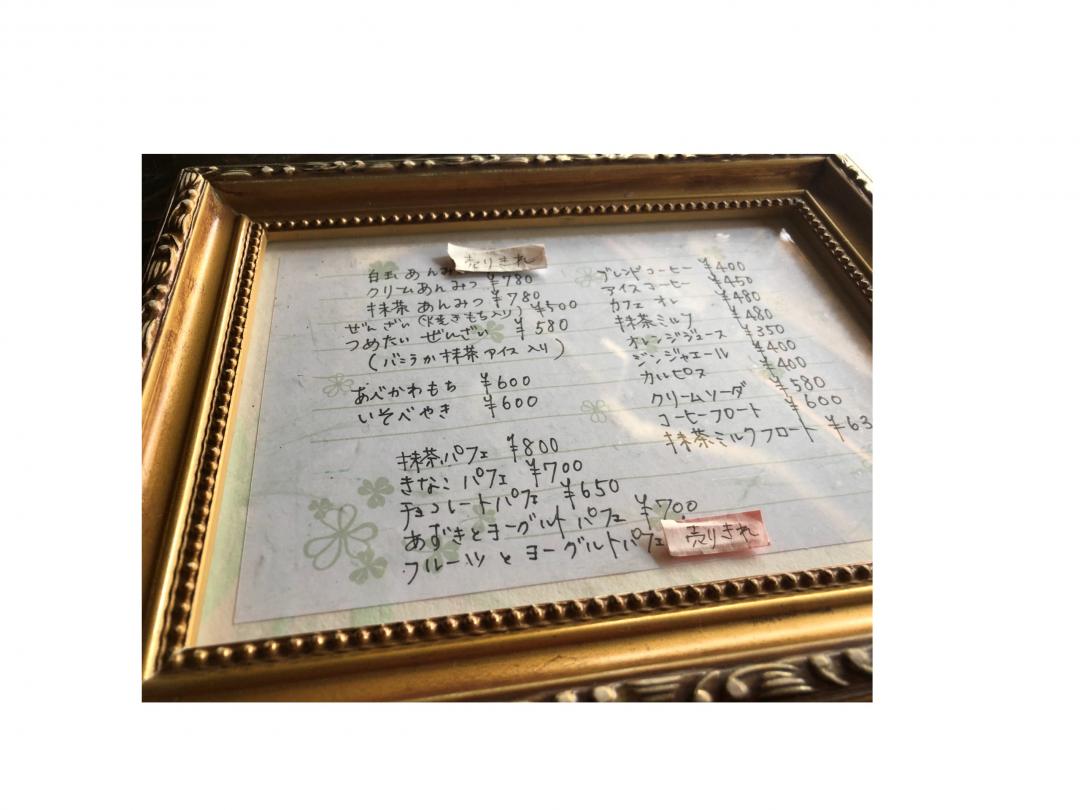 売りきれ
白玉あんみ
クリームあんみつ ¥780
抹茶あんみつ ¥780
ぜんざい(焼きもち入り) ¥500
つめたいぜんざい ¥580
(バニラか抹茶アイス入り)
あべかわもち ¥600
いそべやき ¥600
抹茶パフェ ¥800
きなこパフェ ¥700
チョコレートパフェ ¥650
あずきとヨーグルトパフェ ¥700
フルーツとヨーグルトパフェ 売りきれ
ブレンドコーヒー ¥400
アイスコーヒー ¥450
カフェオレ ¥480
抹茶ミルク ¥480
オレンジジュース ¥350
ジンジャエール ¥400
カルピス ¥400
クリームソーダ ¥580
コーヒーフロート ¥600
抹茶ミルクフロート ¥63